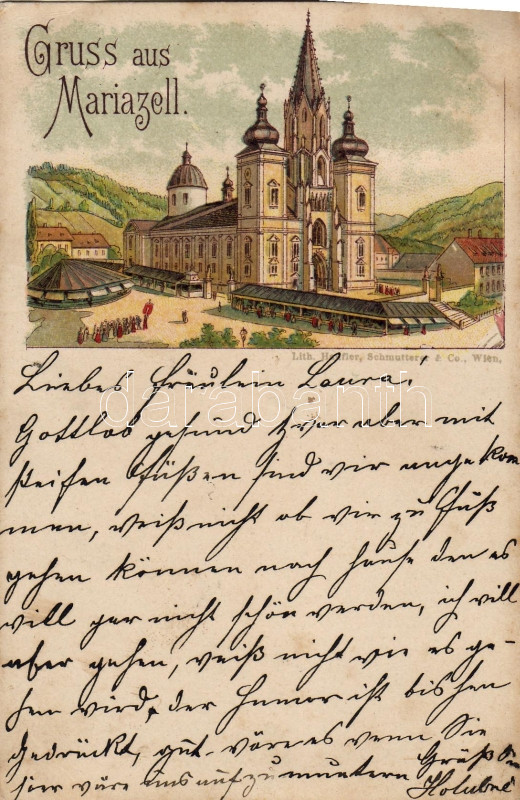 Gruss aus
Mariazell.
Lith. Schmutterer & Co., Wien.
Liebes Fräulein Laura.
darabanth
Gottlob gesund zwar aber mit
steifen Füßen sind wir angekom
men, weiß nicht ob wir zu Fuß
gehen können nach hause den es
will gar nicht schön werden, ich will
aber gehen, weiß nicht wie es ge-
hen wird, der Humor ist bischen
gedrückt, gut wäre es wenn Sie
hier wäre uns aufzumuntern Grüß